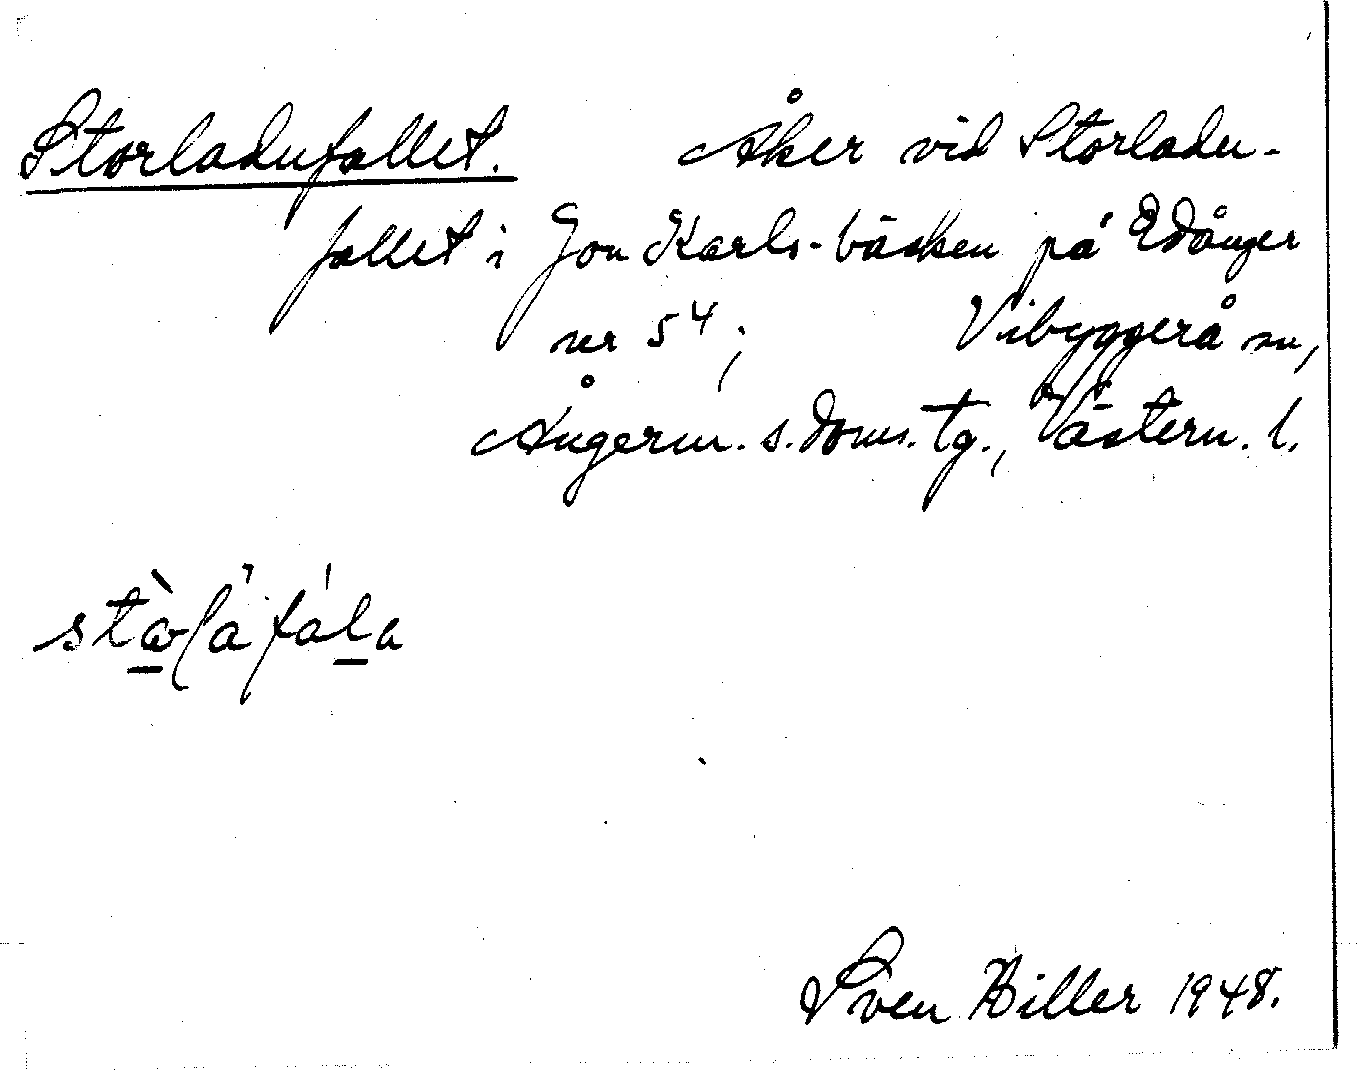 Storladufallet. Åker vid Storladu-
fallet i Jon Karls-bäcken på Edånger
nr 5⁴; Vibyggerå sn,
Ångerm. s. doms. tg., Västern. l.
Sven Hiller 1948.